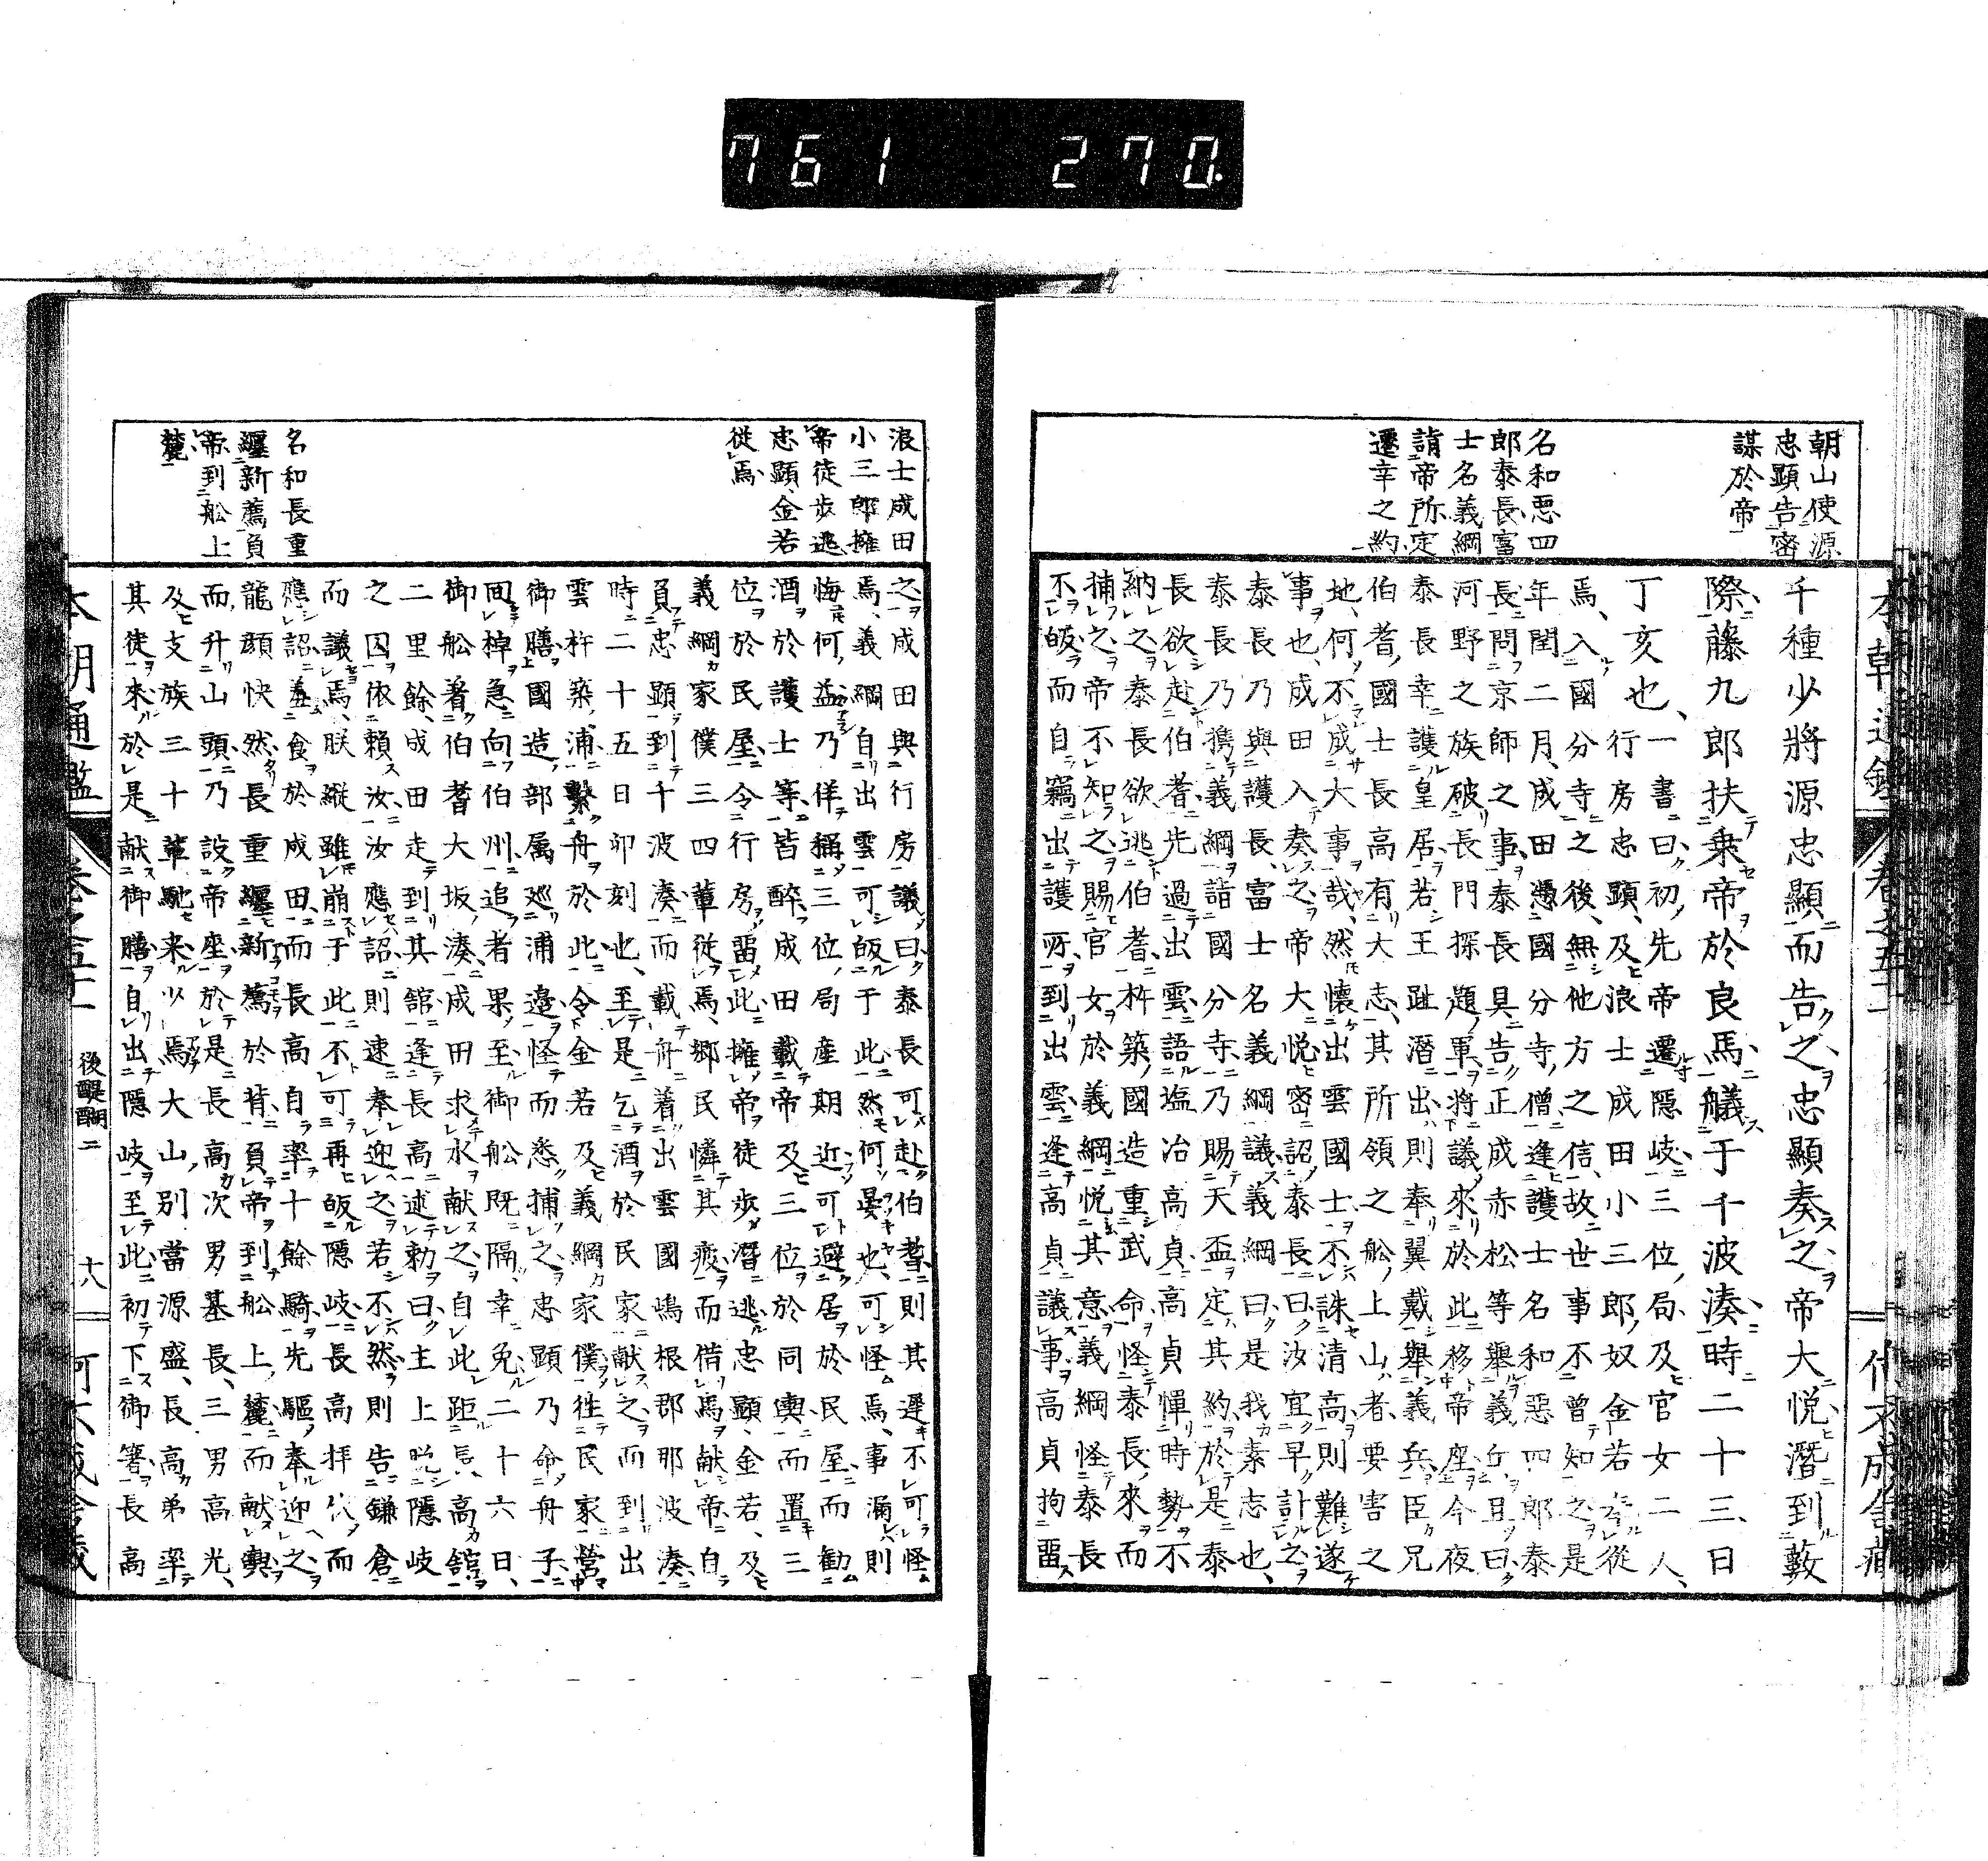 761 270.
朝山使源
忠顯告密
謀於帝
名和悪四
郎泰長富
士名義綱
詣帝所定
遷幸之約
千種少將源忠顯而告之忠顯奏之帝大悦潛到藪
際藤九郎扶乗帝於良馬艤于千波湊時二十三日
丁亥也一書曰初先帝遷隱岐三位局及官女二人
行房忠顯及浪士成田小三郎奴金若等從
焉入國分寺之後無他方之信故世事不曽知之是
年閏二月成田憑國分寺僧逢護士名和惡四郎泰
長問京師之事泰長具告正成赤松等舉義兵且曰
河野之族破長門探題軍將議來於此移帝座今夜
泰長幸護皇居若王趾潛出則奉翼戴舉義兵臣兄
伯耆國士長高有大志其所領之舩上山者要害之
地何不成大事哉然懐出雲國士不誅清高則難遂
事也成田入奏之帝大悦密詔泰長曰汝宜早計之
泰長乃與護長富士名義綱議義綱曰是我素志也
泰長乃携義綱詣國分寺乃賜天盃定其約於是泰
長欲赴伯耆先過出雲語塩冶高貞高貞憚時勢不
納之泰長欲逃伯耆杵築國造重武命怪泰長來而
捕之帝不知之賜官女於義綱悦其意義綱怪泰長
不皈而自竊出護所到出雲逢高貞議事高貞拘畱
浪士成田
小三郎擁
帝徒歩逃
忠顯金若
從焉
名和長重
纒新薦負
帝到舩上
麓
之成田與行房議曰泰長可赴伯耆則其遲不可怪
焉義綱自出雲可皈于此然何晏也可怪焉事漏則
悔何益乃佯稱三位局産期近可避居於民屋而勸
酒於護士等皆醉成田載帝及三位於同輿而置三
位於民屋令行房畱此擁帝徒歩潛逃忠顯金若及
義綱家僕三四軰從焉郷民憐其疲而借馬献帝自
負忠顯到千波湊而載舟着出雲國嶋根郡那波湊
時二十五日卯刻也至是乞酒於民家献之而到出
雲杵築浦繫舟於此令金若及義綱家僕徃民家營
御膳國造部属廵浦邉怪而悉捕之忠顯乃命舟子
囬棹急向伯州追者果至御舩既隔幸免二十六日
御舩着伯耆大坂湊成田求水献之自此距長高舘
二里餘成田走到其舘逢長高述勅曰主上晩隱岐
之囚依賴汝汝應詔則速奉迎之若不然則告鎌倉
而議焉朕縱雖崩于此不可再皈隱岐長高拜伏而
應詔羞食於成田而長高自率十餘騎先驅奉迎之
龍顔快然長重纒新薦於背負帝到舩上麓而献輿
而升山頭乃設帝座於是長高次男基長三男高光
及支族三十軰馳来少焉大山別當源盛長高弟率
其徒來於是献御膳自出隱岐至此初下御箸長高
本朝通鑑
卷之五十一
後醍醐二
十八